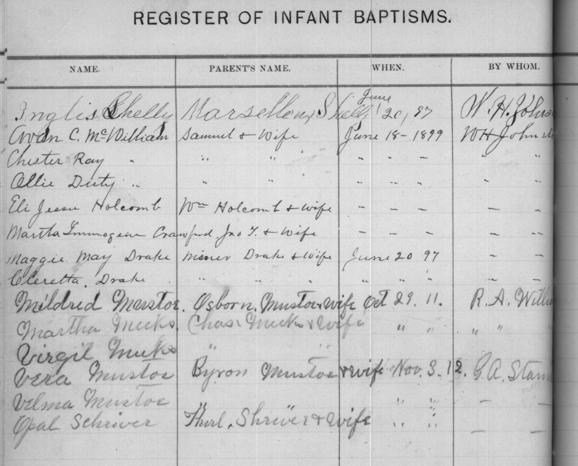 REGISTER OF INFANT BAPTISMS.
NAME. PARENT'S NAME. WHEN. BY WHOM.
Inglis Shelly Marsellous Shelly June 20, 97 W. H. Johns
Avan C. McWilliam Samuel & Wife June 18 - 1899 WH John
Chester Ray " " " - - - " "
Allie Duty " " " - - - " "
Eli Jesse Holcomb Wm Holcomb & Wife - - - - -
Martha Immogene Crawford Jno T. & Wife - - - - -
Maggie May Drake Miner Drake & Wife June 20 97 - -
Cleretta Drake " " " " " " - -
Mildred Mustoe Osborn Mustoe & wife Oct 29. 11. R. A. Willi
Martha Meeks. Chas. Meeks & wife " " " "
Virgil Meeks " "
Vera Mustoe Byron Mustoe & wife Nov. 3. 12. G. A. Star
Velma Mustoe " " - -
Opal Schriver Thurl. Shriver & wife " " - -